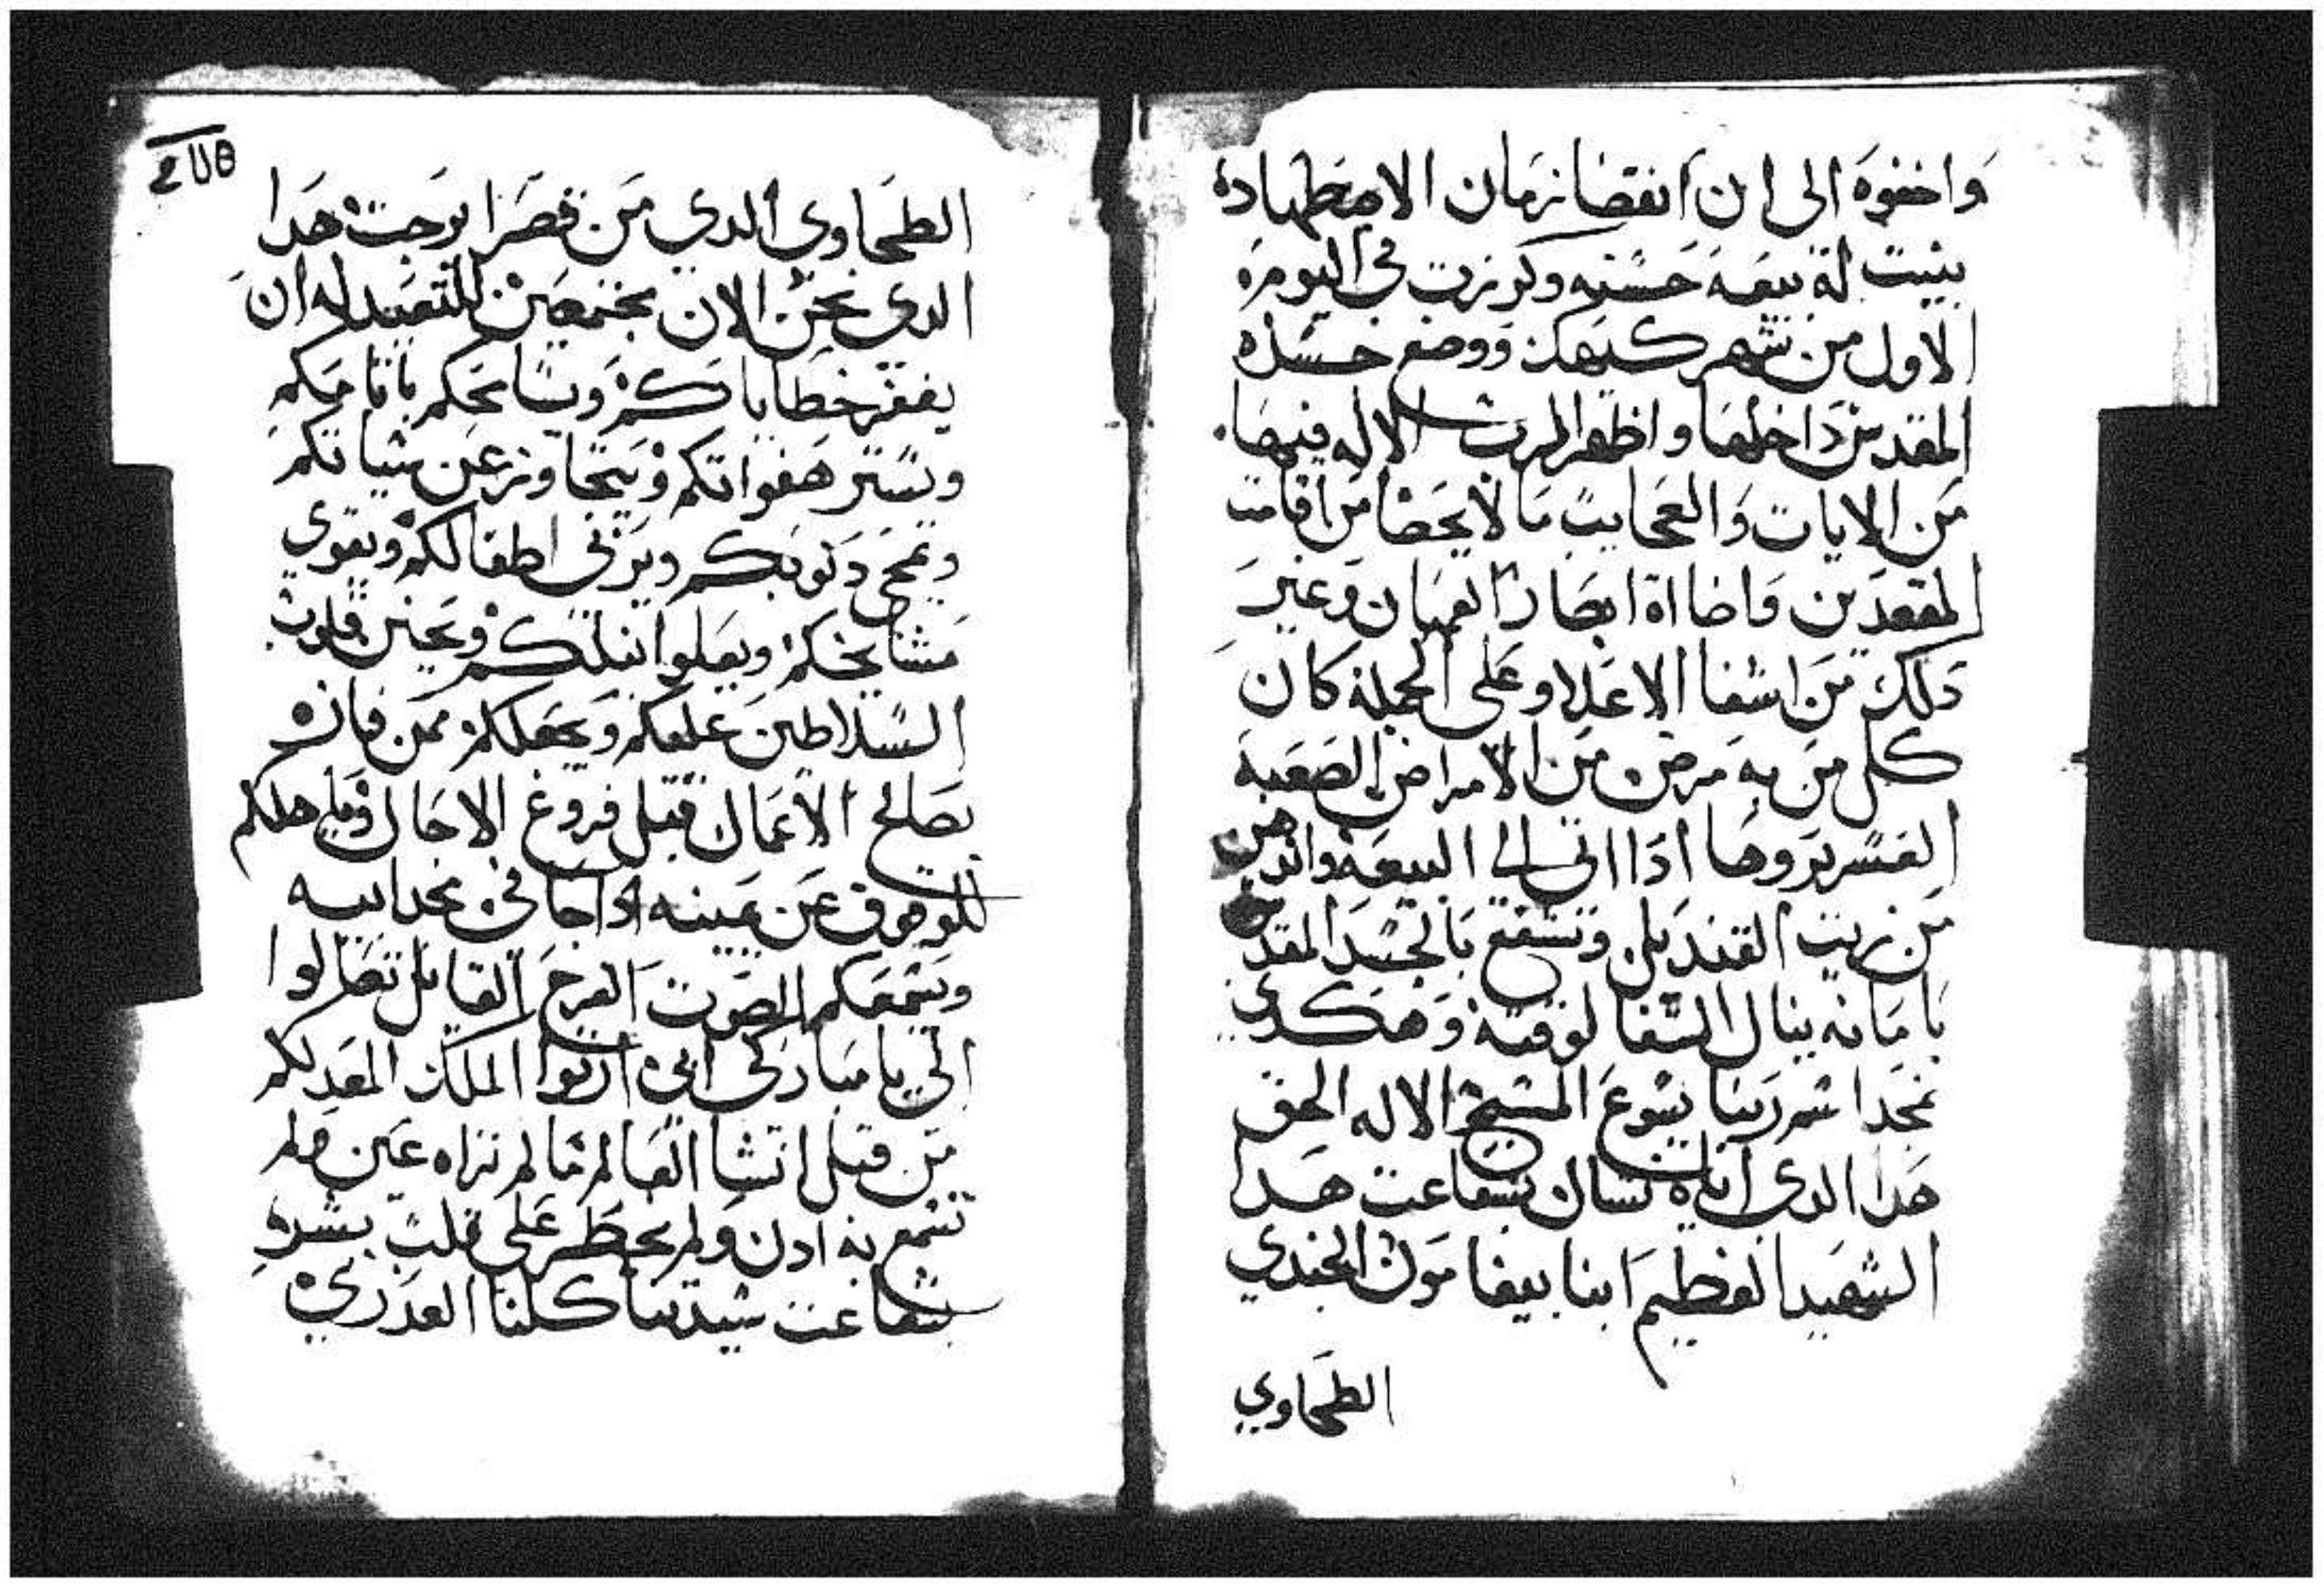 واخفوه الى ان انقضا زمان الاضطهاده
بنيت له بيعه حسنه وكرزت في اليوم
الاول من شهر كيهك ووضع جسده
المقدس داخلها واظهر الرب الاله فيها
من الايات والعجايب ما لا يحصا من اقامت
المقعدين واضااة ابصار العميان وغير
دلك من اشفا الاعلا وعلى الجملة كان
كل من به مرض من الامراض الصعبة
العسر بروها ادا اتى الي البيعة والدهن
من زيت القنديل وتشفع بالجسد المقدس
بامانه ينال الشفا لوقته وهكدي
نجدا يسوع المسيح الاله الحق
هدا الدي اياه نسال بشفاعت هدا
الشهيد العظيم ابنا بيفامون الجندي
الطحاوي
الطحاوي الدي من قصرا برجت هدا
الدي نحن الان مجتمعين للتعييد له ان
يغفر خطاياكم ويسامحكم باتامكم
ويستر هفواتكم ويتجاوز عن سياتكم
ويمحي دنوبكم ويربي اطفالكم ويقوي
مشايخكم ويحنن قلوب
السلاطين عليكم ويجعلكم ممن فاز
بصالح الاعمال قبل فروغ الاجال
للوقوف عن يمينه ادا جا في مجد ابيه
ويسمعكم الصوت الفرح القايل تعالوا
الي يا مباركي ابي ارتوا الملك المعد لكم
من قبل انتشا العالم ما لم تراه عين ولم
تسمع به ادن ولم يخطر على قلب بشر
بشفاعت سيدتنا كلنا العدري